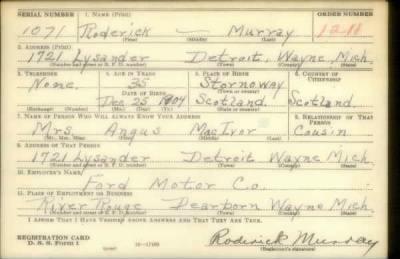 SERIAL NUMBER 1. NAME (Print) ORDER NUMBER
1071 Roderick — Murray 1211
(First) (Middle) (Last)
2. ADDRESS (Print)
1721 Lysander Detroit, Wayne, Mich.
(Number and street or R. F. D. number) (Town) (County) (State)
3. TELEPHONE 4. AGE IN YEARS 5. PLACE OF BIRTH 6. COUNTRY OF CITIZENSHIP
None. 35 Stornoway
DATE OF BIRTH (Town or county)
Dec 25 1904 Scotland. Scotland.
(Exchange) (Number) (Mo.) (Day) (Yr.) (State or country)
7. NAME OF PERSON WHO WILL ALWAYS KNOW YOUR ADDRESS 8. RELATIONSHIP OF THAT PERSON
Mrs. Angus MacIvor Cousin
(Mr., Mrs., Miss) (First) (Middle) (Last)
9. ADDRESS OF THAT PERSON
1721 Lysander Detroit Wayne Mich.
(Number and street or R. F. D. number) (Town) (County) (State)
10. EMPLOYER'S NAME
Ford Motor Co.
11. PLACE OF EMPLOYMENT OR BUSINESS
River Rouge Dearborn Wayne Mich.
(Number and street or R. F. D. number) (Town) (County) (State)
I AFFIRM THAT I HAVE VERIFIED ABOVE ANSWERS AND THAT THEY ARE TRUE.
REGISTRATION CARD
D. S. S. Form 1 16—17105 Roderick Murray
(Registrant's signature)